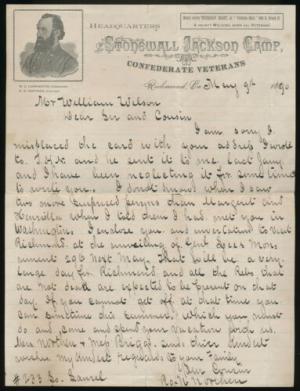 HEADQUARTERS
STONEWALL JACKSON CAMP,
CONFEDERATE VETERANS
Richmond, Va. May 9th 1890
Mr William Wilson
Dear Sir and Cousin
I am sorry I
misplaced the card with your address I wrote
to and he sent it to me last Jany
and I have been neglecting it for some time
to write you. I dont know when I saw
two more surprised persons than Margaret and
when I told them I had met you in
Washington. I enclose you and invitation to visit
Richmond at the unveiling of Genl Lees Mon
ument 29th Next May. That will be a very
large day for Richmond and all the Rebs that
are not dead are expected to be present on that
day. If you cannot get off at that time you
can sometime this summer, which you must
do and come and spend your vacation with us.
Mrs Wothen & Mrs Briggs and their
my kindest regards to your family
Your Cousin
# 233 So. Laurel